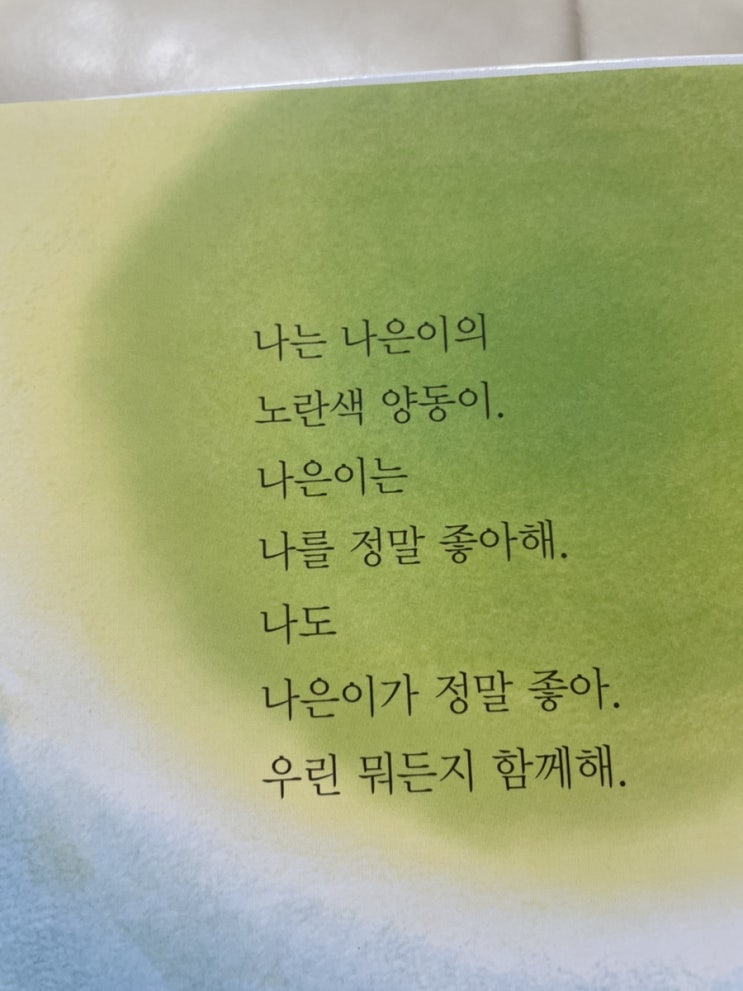 나는 나은이의
노란색 양동이.
나은이는
나를 정말 좋아해.
나도
나은이가 정말 좋아.
우린 뭐든지 함께해.